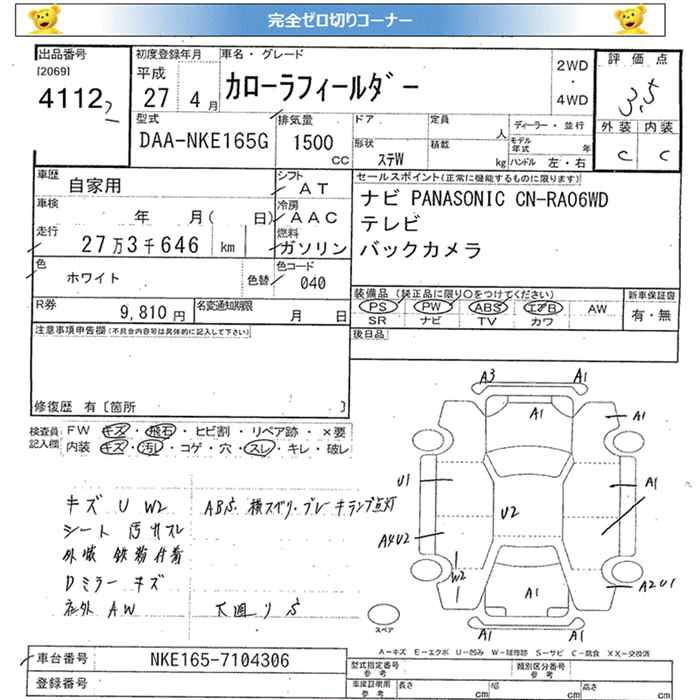 完全ゼロ切りコーナー
出品番号 初度登録年月 車名・グレード 評価点
[2069] 平成 カローラフィールダー 2WD
4112 27 4月 ・4WD 3.5
型式 排気量 ドア 定員 人 ディーラー・並行 外装 内装
DAA-NKE165G 1500 CC 形状 ステW 積載 kg モデル年式 年 ハンドル 左・右 C C
車歴 自家用 シフト AT セールスポイント(正常に機能するものに限ります)
車検 年 月( 日) 冷房 AAC ナビ PANASONIC CN-RA06WD
走行 27万3千646 km 燃料 ガソリン テレビ
バックカメラ
色 ホワイト 色替 色コード 040
装備品(純正品に限り○をつけてください) 新車保証書
R券 9,810円 名変通知期限 月 日 PS PW ABS エアB AW 有・無
SR ナビ TV カワ
注意事項申告欄(不具合内容等は具体的に記入して下さい) 後日品
修復歴 有[箇所 ]
検査員記入欄 FW キズ・飛石・ヒビ割・リペア跡・×要
内装 キズ・汚レ・コゲ・穴・スレ・キレ・破レ
キズ U W2 ABS、横スベリ・ブレーキランプ点灯
シート 汚れスレ
外板 鉄粉付着
Dミラー キズ
社外 AW 下廻りS
A3 A1
A1 A1
U1 A1
U2
A4U2
W2 A1 A2U1
A1 A1
スペア
A-キズ E-エクボ U-凹み W-補修跡 S-サビ C-腐食 XX-交換済
車台番号 NKE165-7104306
型式指定番号 参考 類別区分番号 参考
登録番号 車検証明用 参考 長さ cm 幅 cm 高さ cm